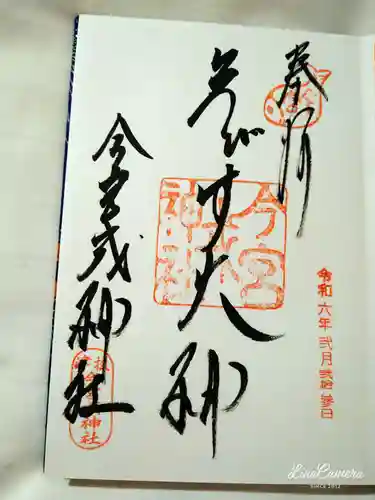 奉拝
ゑびす大神
今宮戎神社
今宮戎神社
令和六年弐月弐拾参日
神社
LINE Camera
SINCE 2012